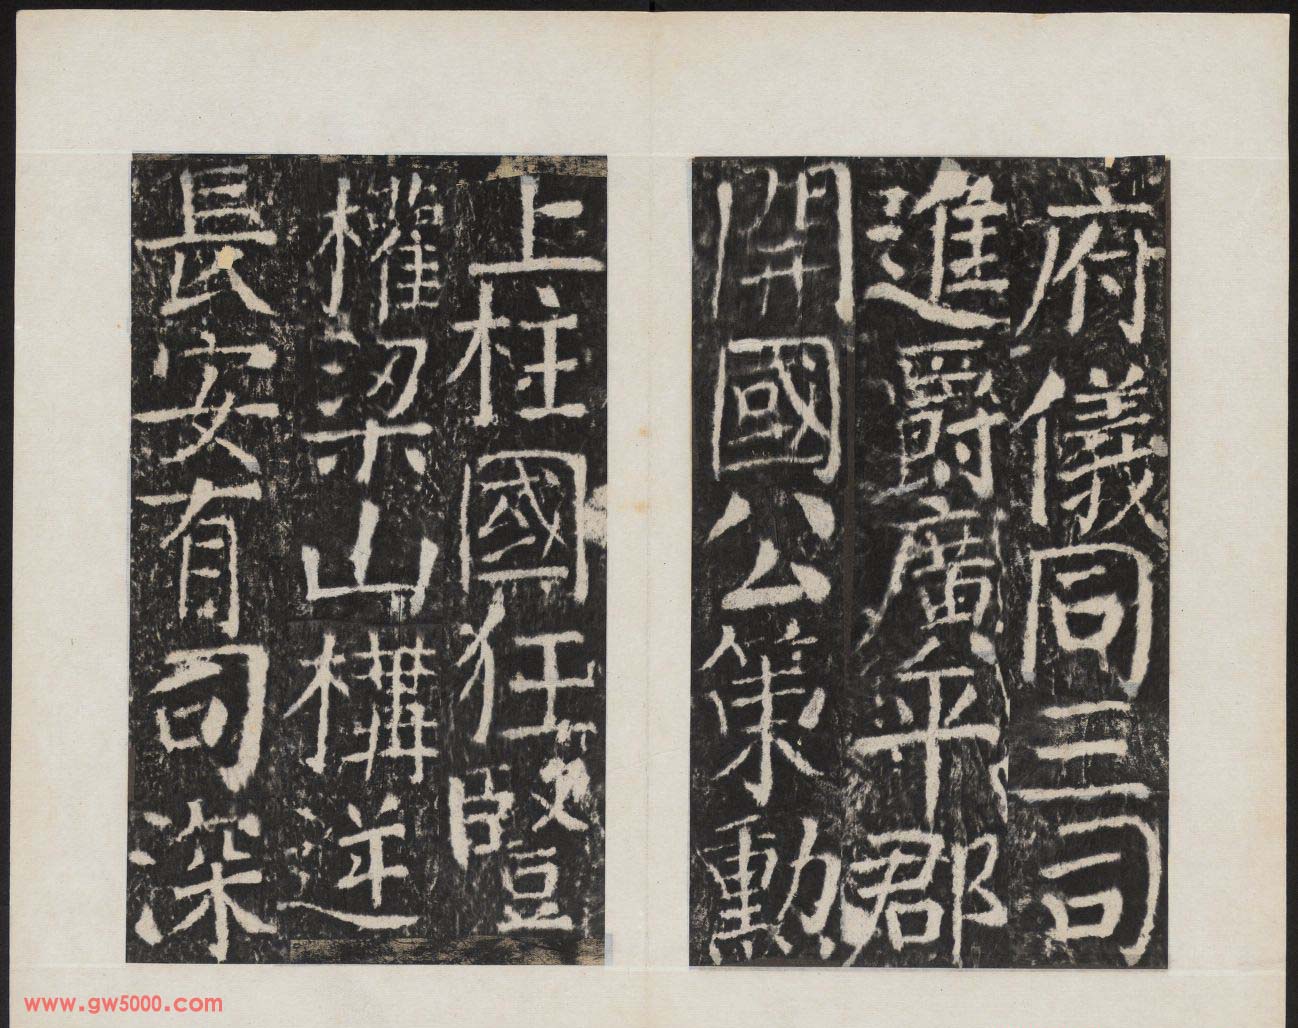 府儀同三司
進爵廣平郡
開國公策勳
上柱國狂豎
權梁山構逆
長安有司深
www.gw5000.com